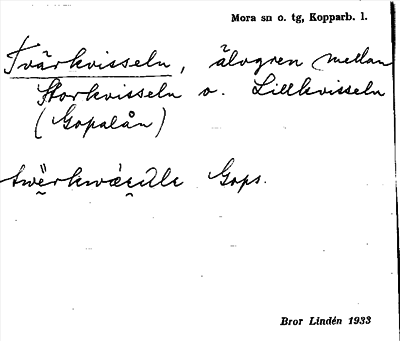 Mora sn o. tg, Kopparb. l.
Tvärkvisseln, älvgren mellan
Storkvisseln o. Lillkvisseln
(Gopalån)
Gops.
Bror Lindén 1933